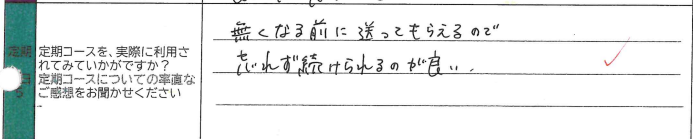 定期コースを、実際に利用さ
れてみていかがですか？
定期コースについての率直な
ご感想をお聞かせください
無くなる前に送ってもらえるので
忘れず続けられるのが良い．